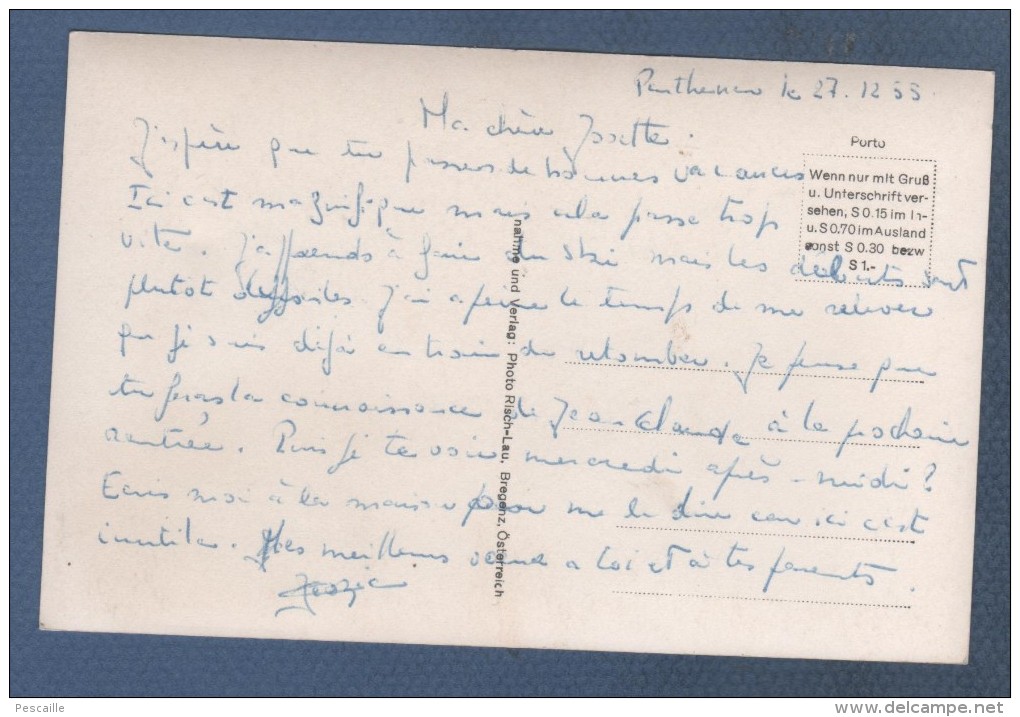 le 27.12.55
Ma chère Josette.
J'espère que tu passes de bonnes vacances
Ici c'est magnifique mais cela passe trop
vite. J'apprends à faire du ski mais les débuts sont
plutôt difficiles. J'ai à peine le temps de me relever
que je suis déjà en train de retomber. Je pense que
tu feras la connaissance de Jean Claude à la prochaine
rentrée. Puis je te voir mercredi après-midi?
Ecris moi à la maison pour me le dire car ici c'est
inutile. Mes meilleurs vœux a toi et à tes parents.
Porto
Wenn nur mit Gruß
u. Unterschrift ver-
sehen, S 0.15 im In-
u. S 0.70 im Ausland
sonst S 0.30 bezw
S 1.-
nahme und Verlag: Photo Risch-Lau, Bregenz, Österreich
Pescaille
www.delcampe.net